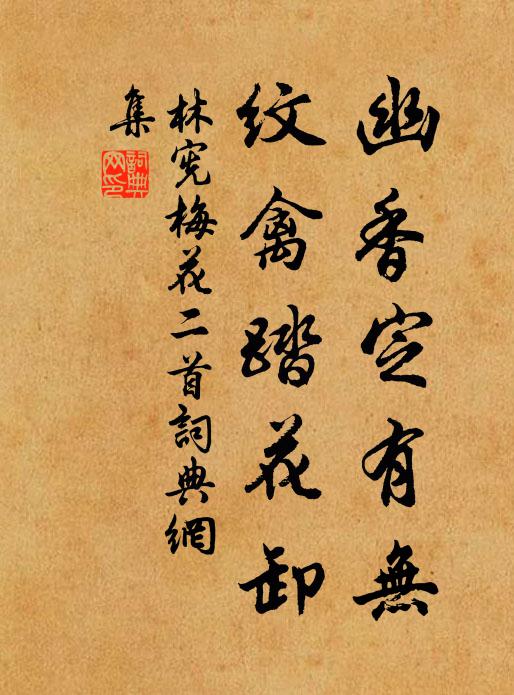 幽香定有無
紋禽踏花卸
林憲梅花二首詞典網
集
詞典網印